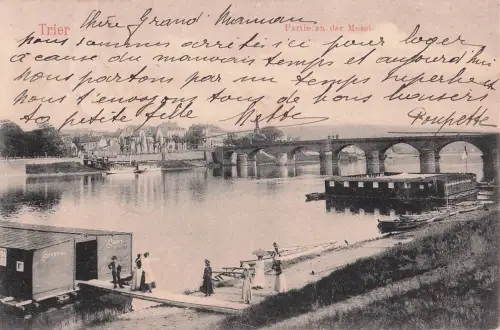 Trier
Partie an der Mosel.
Chère Grand Maman
nous sommes arrêtés ici pour loger
à cause du mauvais temps et aujourd'hui
nous partons par un temps superbe
nous t'envoyons tous de bons baisers
ta petite fille Nette Poupette